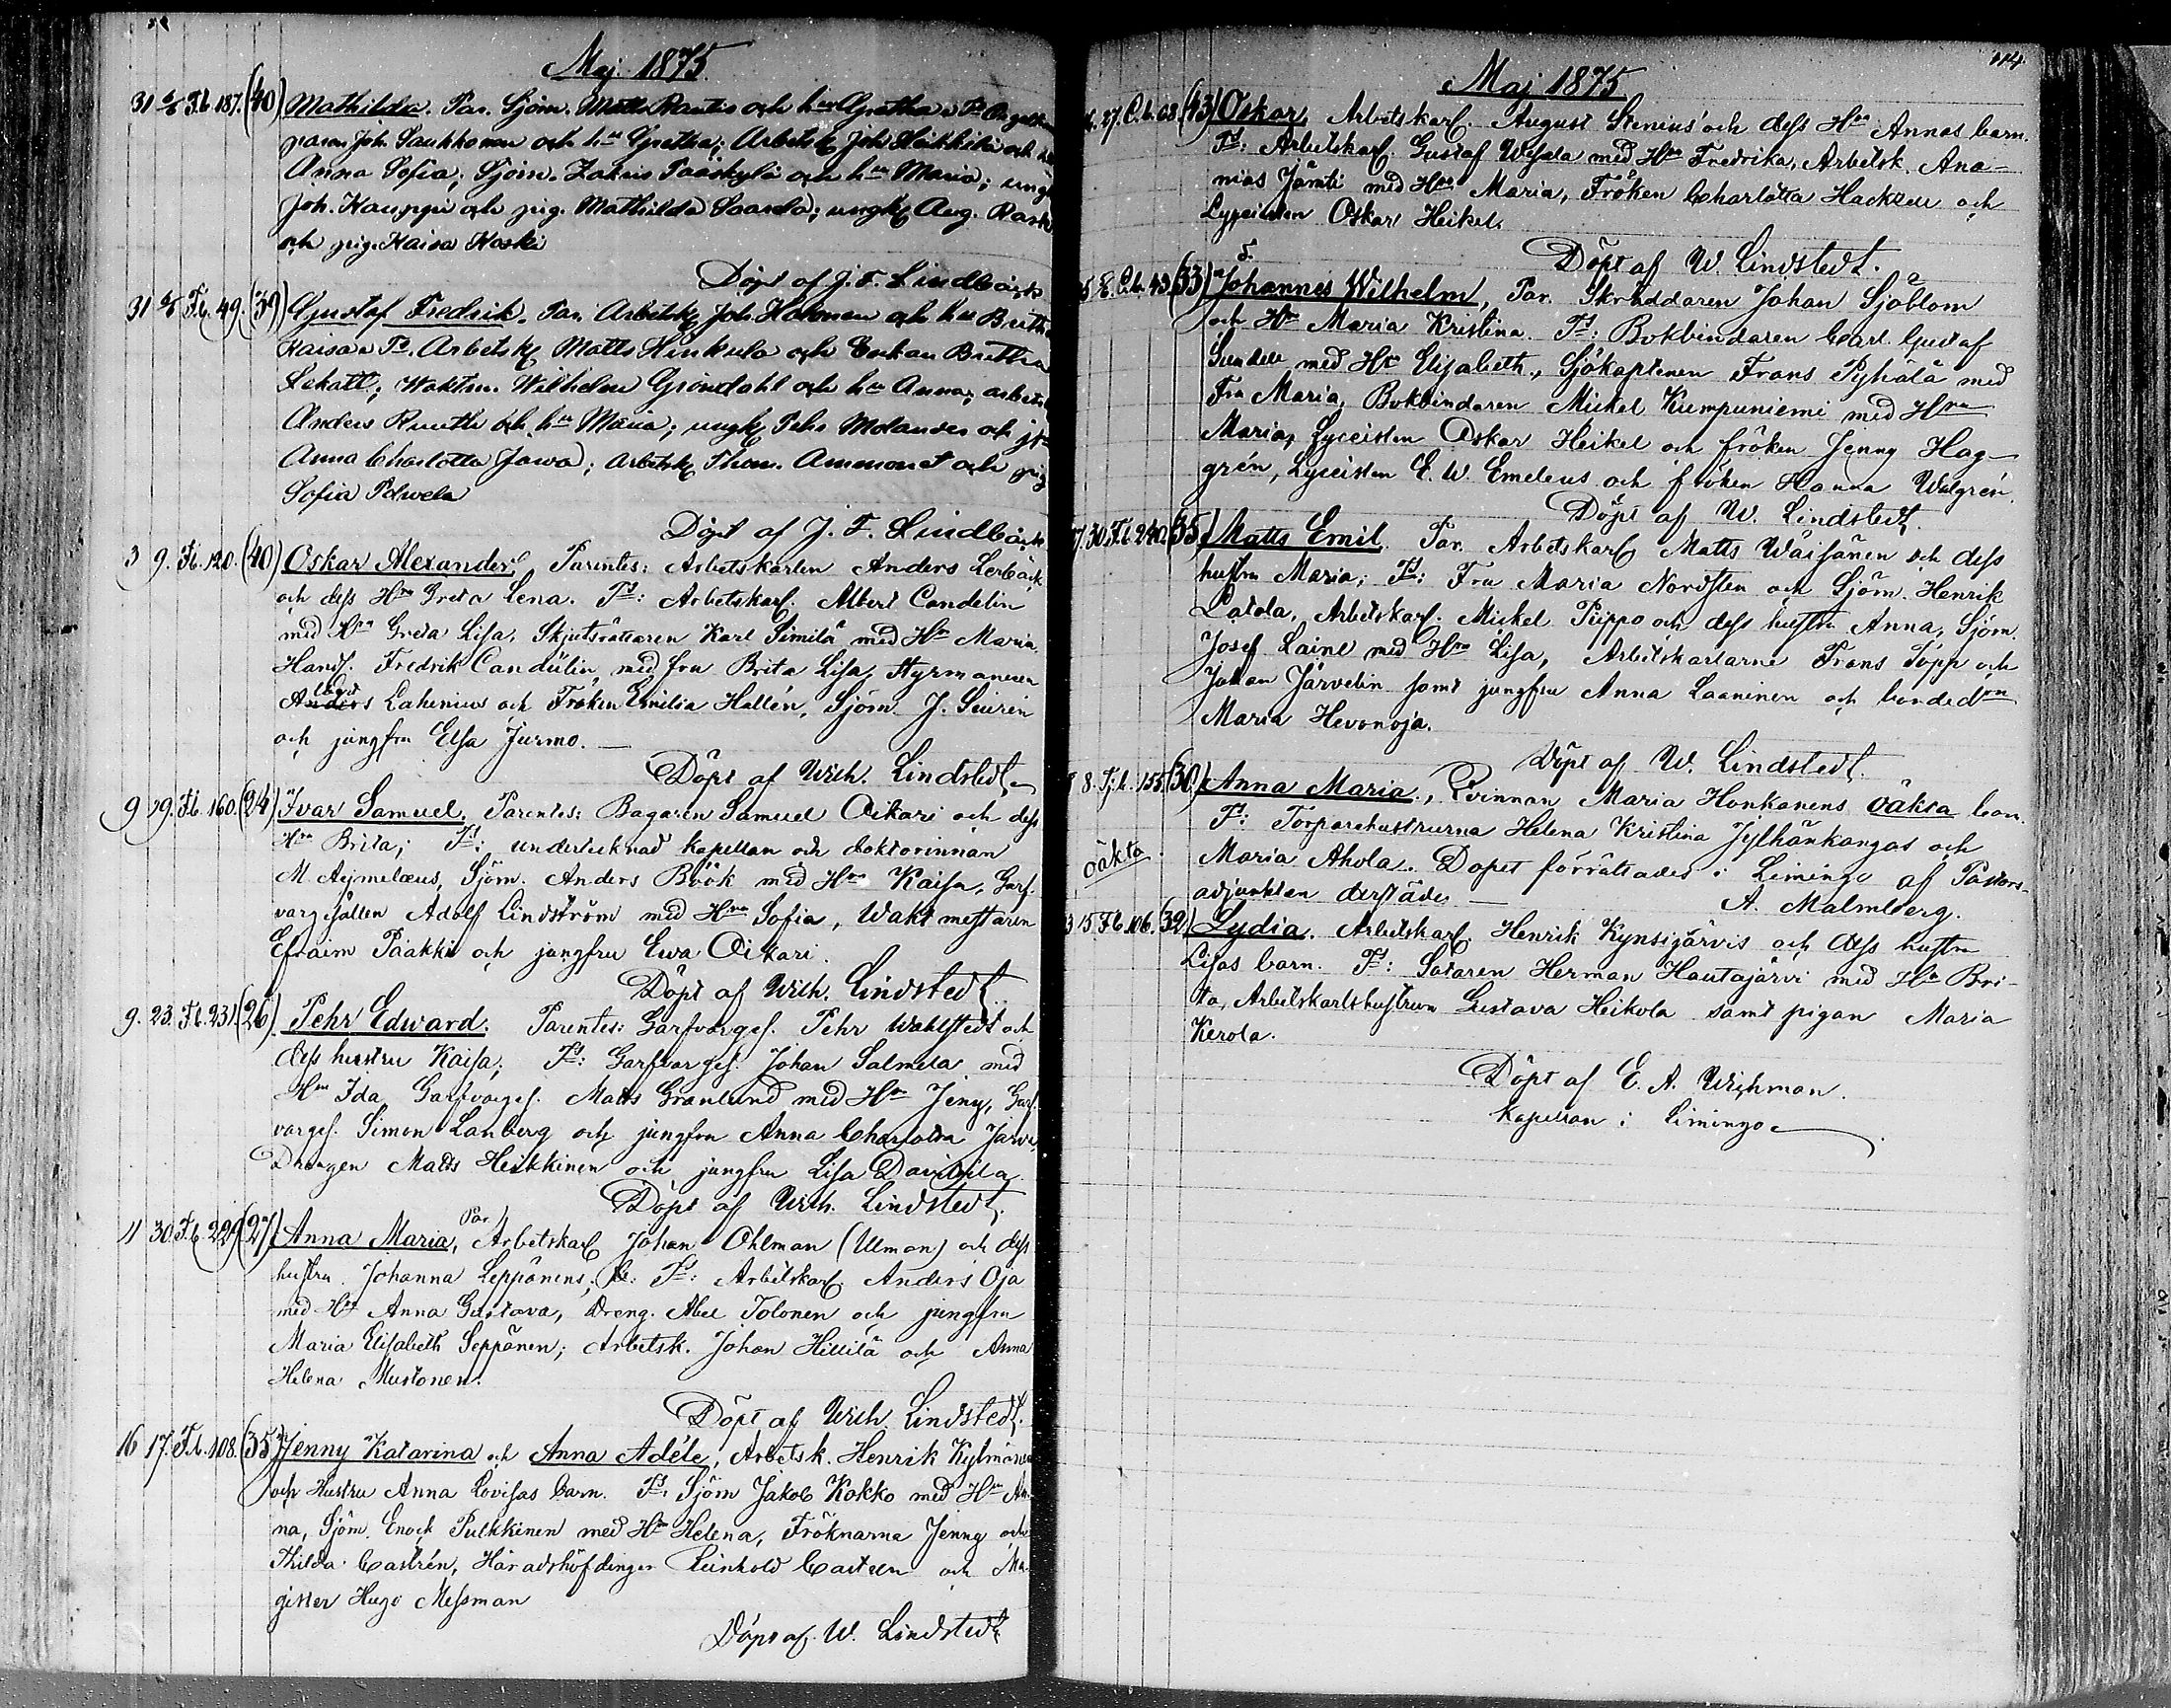 Maj 1875.
31 6/6 F.b. 187. (40) Mathilda. Par. Sjöm. Matts Rautio och h:u Gretha; T:s
Joh. Saukkonen och h:u Gretha; Arbetsk. Joh. Heikkilä och
Anna Sofia; Sjöm. Zakris Pääskylä och h:u Maria; ungk
Joh. Kauppi och pig. Mathilda Saarela; ungk. Aug. Rask
och pig. Kaisa Koski
Döpt af J. F. Lindbäck
31 6/6 F.b. 49. (39) Gustaf Fredrik. Par. Arbetsk. Joh. Holmen och h:u Britha
Kaisa; T:s. Arbetsk. Matts Hinkula och Enkan Britha
Lekatt; Waktm. Wilhelm Gröndahl och h:u Anna; arbetsk
Anders Ruuth och h:u Maria; ungk. Pehr Molander och jgf
Anna Charlotta Jawa; Arbetsk. Thom. Ammonet och pig
Sofia Polwela
Döpt af J. F. Lindbäck
3 9. F.b. 120. (40) Oskar Alexander, Parentes: Arbetskarlen Anders Lerbäck
och dess H:ru Greta Lena. T:s: Arbetskarl. Albert Candelin
med H:ru Greta Lisa, Skjutsrättaren Karl Similä med H:ru Maria,
Handl. Fredrik Candelin, med fru Brita Lisa, Styrmannen
Anders Lahenius och Fröken Emilia Hallén, Sjöm. J. Siurin
och jungfru Elsa Jurmo. —
Döpt af Wilh. Lindstedt.
9 19. F.b. 160. (24) Ivar Samuel. Parentes: Bagaren Samuel Oikari och dess
H:ru Brita; T:s: undertecknad kapellan och doktorinnan
M. Aejmelæus, Sjöm. Anders Böök med H:ru Kaisa, Garf-
vargesällen Adolf Lindström med H:ru Sofia, Waktmestaren
Efraim Paakki och jungfru Ewa Oikari.
Döpt af Wilh. Lindstedt.
9. 23. F.b. 231. (26) Pehr Edward. Parentes: Garfvarges. Pehr Wahlstedt och
dess hustru Kaisa; T:s: Garfvarges. Johan Salmela med
H:ru Ida, Garfvarges. Matts Granlund med H:ru Jeny, Garf-
varges. Simon Lanberg och jungfru Anna Charlotta Jarva,
Drängen Matts Heikkinen och jungfru Lisa Davidila
Döpt af Wilh. Lindstedt.
Par
11 30. F.b. 229 (27) Anna Maria, Arbetskarl. Johan Ohlman (Ulman) och dess
hustru Johanna Leppänens; T:s: Arbetskarl. Anders Oja
med H:ru Anna Gustava, Dreng. Abel Tolonen och jungfru
Maria Elisabeth Seppänen; Arbetsk. Johan Hillilä och Anna
Helena Mustonen.
Döpt af Wilh. Lindstedt.
16 17. F.b. 108. (35) Jenny Katarina och Anna Adéle, Arbetsk. Henrik Kylmänen
och Hustru Anna Lovisas barn. T:s. Sjöm Jakob Kokko med H:ru An-
na, Sjöm. Enock Pulkkinen med H:ru Helena, Fröknarna Jenny och
Thilda Castrén, Häradshöfdinge Reinhold Castrén och Ma-
gister Hugo Messman
Döpt af. W. Lindstedt
114.
Maj 1875
27. C.b. 68 (43) Oskar, Arbetskarl. August Stenius' och dess H:ru Annas barn.
T:s: Arbetskarl. Gustaf Wesala med H:ru Fredrika, Arbetsk. Ana-
nias Jämti med H:ru Maria, Fröken Charlotta Hackzell och
Lyceisten Oskar Heikel.
Döpt af W. Lindstedt.
C.b. 43 (33) Johannes Wilhelm, Par. Skräddaren Johan Sjöblom
och H:ru Maria Kristina. T:s: Bokbindaren Carl Gustaf
Sundell med H:ru Elisabeth, Sjökaptenen Frans Pyhälä med
Fru Maria, Bokbindaren Mickel Kumpuniemi med H:ru
Maria, Lyceisten Oskar Heikel och fröken Jenny Hag-
grén, Lyceisten E. W. Emeleus och fröken Hanna Walgrén.
Döpt af W. Lindstedt.
30 F.b. 240. (35) Matts Emil. Par. Arbetskarl Matts Wäisänen och dess
hustru Maria; T:s: Fru Maria Nordsten och Sjöm. Henrik
Latola, Arbetskarl. Mickel Piippo och dess hustru Anna, Sjöm.
Josef Laine med H:ru Lisa, Arbetskarlarne Frans Topp och
Johan Järvelin samt jungfru Anna Laaninen och bonded:rn
Maria Hevonoja.
Döpt af W. Lindstedt.
8. F.b. 155. (30.) Anna Maria, Qvinnan Maria Honkanens oäkta barn.
T:s: Torparehustrurna Helena Kristina Jylhänkangas och
oäkta
Maria Ahola. Dopet förrättades i Limingo af Pastors-
adjunkten derstädes — A. Malmberg.
15. F.b. 106. (32) Lydia. Arbetskarl. Henrik Kynsijärvis och dess hustru
Lisas barn. T:s: Sotaren Herman Hautajärvi med H:ru Bri-
ta, Arbetskarlshustrun Gustava Heikola samt pigan Maria
Kerola.
Döpt af E. A. Wichman.
Kapellan i Limingo